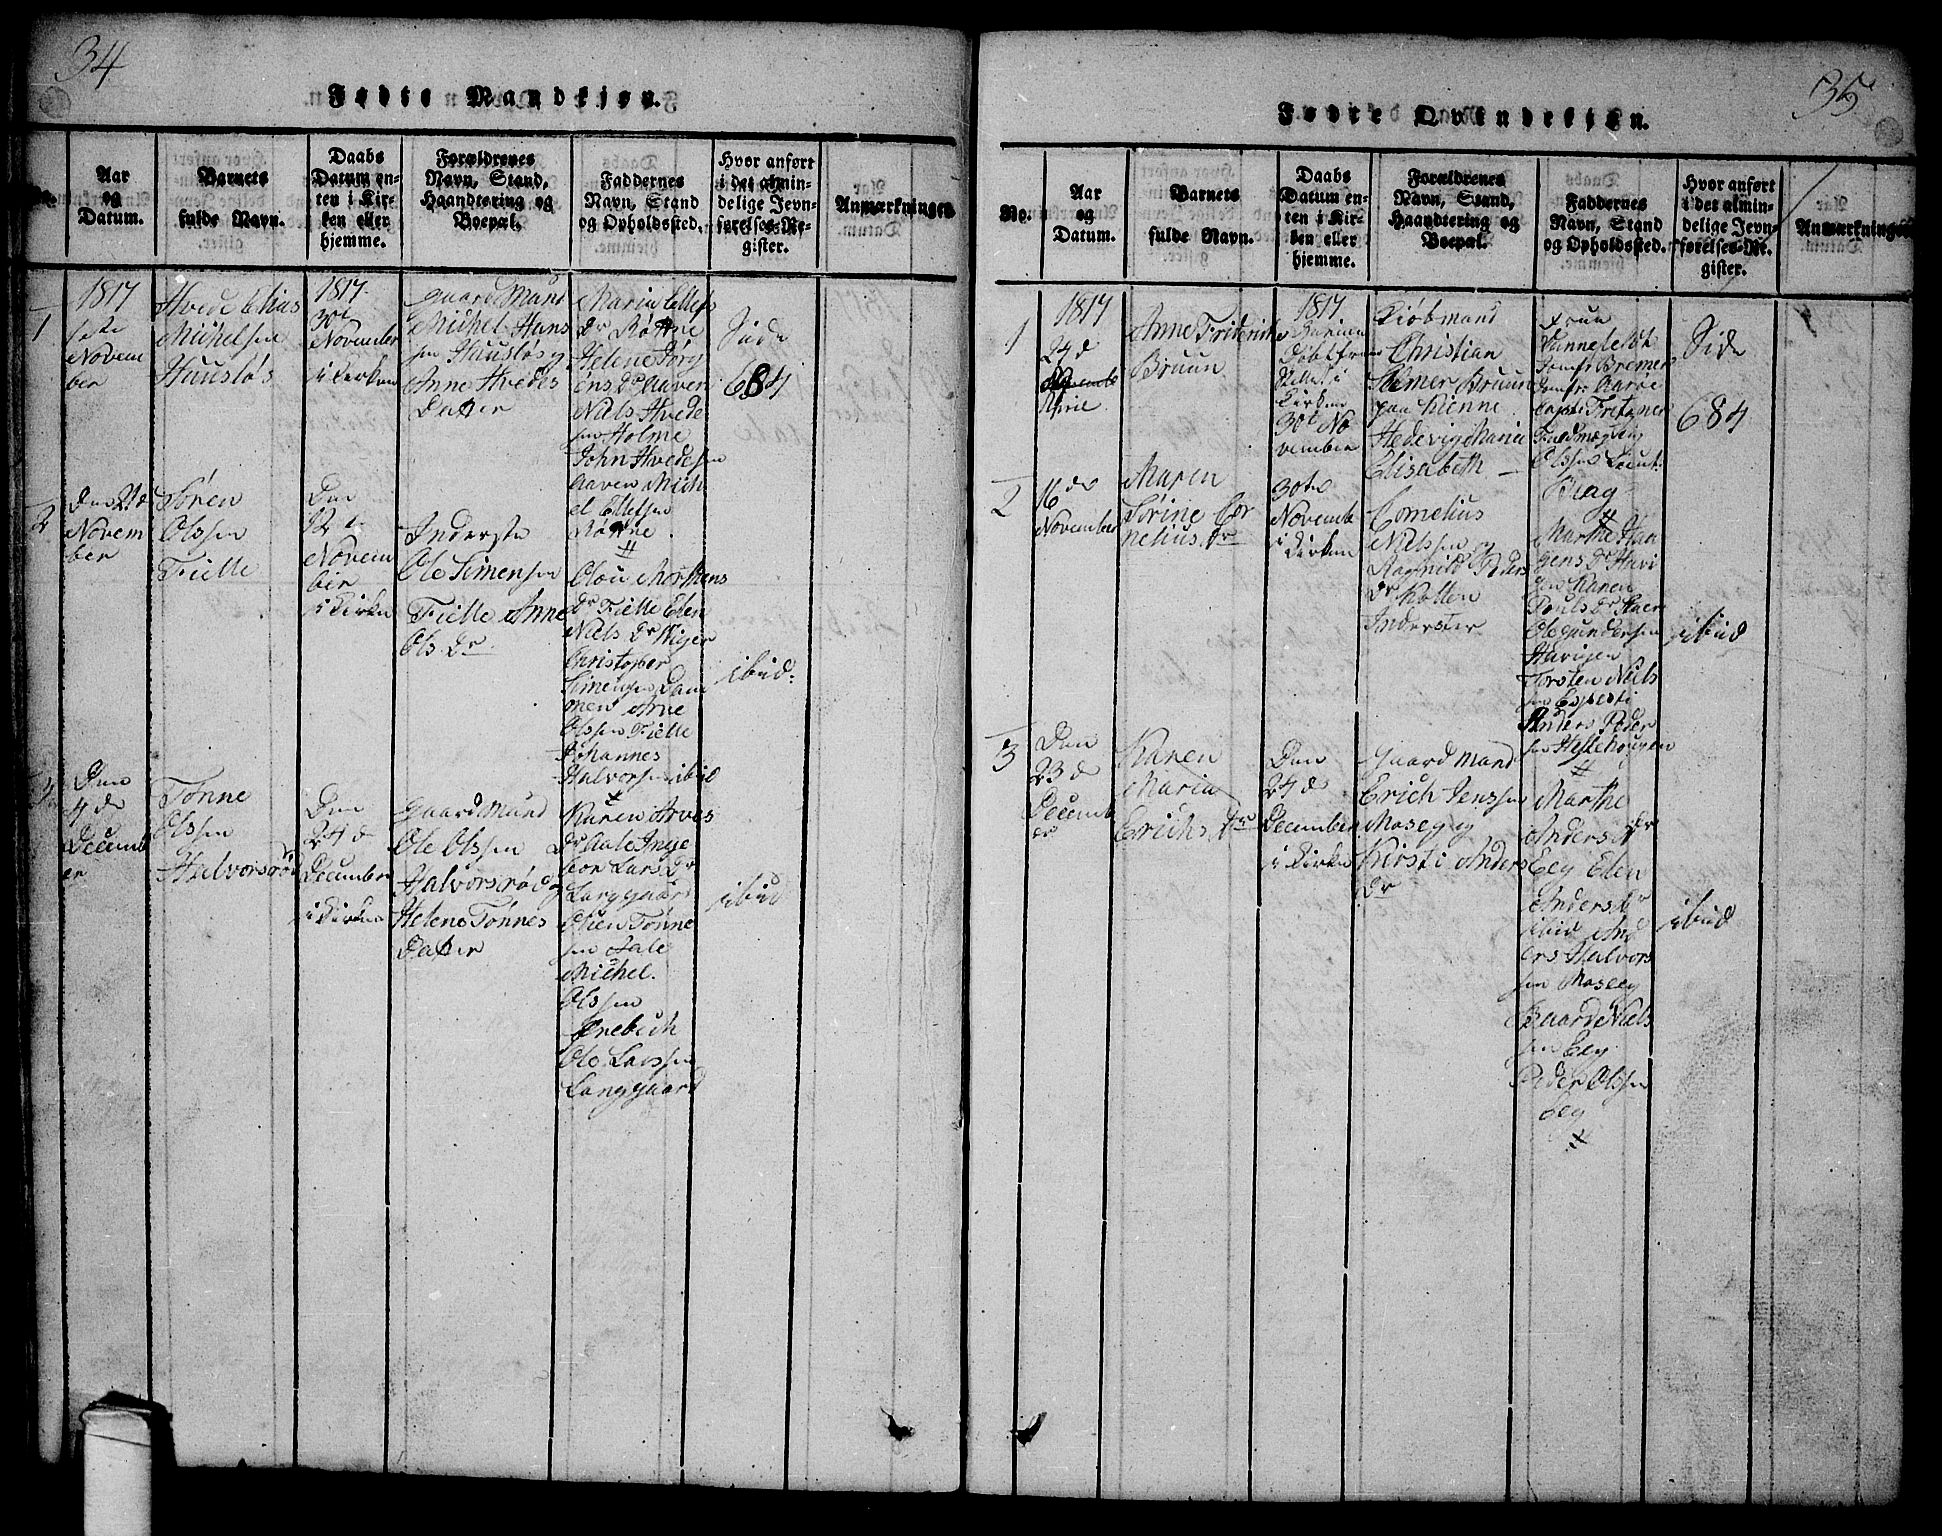 34
Fødte Mandkjøn.
No.
Aar
og
Datum.
Barnets
fulde Navn.
Daabs
Datum en-
ten i Kir-
ken eller
hjemme.
Forældrenes
Navn, Stand,
Haandtering og
Boepæl.
Faddernes
Navn, Stand
og Opholdssted.
Hvor anført
i det almin-
delige Jevn-
førelses-Re-
gister.
Anmærkninger.
1
1817
Novem
ber
Hvede Elias
Michelsen
Hausløs
1817
30te
November
i Kirken
Gaard Mand
Michel Hans
sen Hausløs og
Anne Hvedes
Datter
Maria Ellefs
Dr
Helene Jørg
ens Dr Aaven
Niels Hvede
sen Holme
John Hvedesen
Aaven Mich
el Ellefsen
Side
684
2
Novem
ber
Søren
Olssen
Fielle
Den
12 t
Novem
ber
i Kirken
Inderste
Ole Simensen
Fielle Anne
Ols Dr
Olou Mortens
Dr Fielle Elen
Niels Dr
Christopher
Simensen Dam
men Arne
Olssen Fielle
Johannes
Halvorsen ibid
ibid:
3
Den
4 de
Decemb
er
Tønne
Olssen
Halvorsrød
Den
24 d
December
i Kirken
Gaard Mand
Ole Olssen
Halvorsrød og
Helene Tønnes
Datter
Karen Arves
Dr Aale Inge
bor Lars Dr
Langgaard
Tønne
sen Aale
Michel
Olssen
Ole Larssen
Langgaard
ibid
35
Fødte Qvindekjøn.
No.
Aar
og
Datum.
Barnets
fulde Navn.
Daabs
Datum en-
ten i Kir-
ken eller
hjemme.
Forældrenes
Navn, Stand,
Haandtering og
Boepæl.
Faddernes
Navn, Stand
og Opholdssted.
Hvor anført
i det almin-
delige Jevn-
førelses-Re-
gister.
Anmærkninger
1
1817
Anne Friderike
Bruun
1817
i
Kirken
30t No
vember
Kiøbmand
Christian
Bruun
paa Kienne
Hedevig Marie
Elisabeth
Fruu
Jomfr Bremer
Jomfr Aarøe
Olssen Lieut.
Brag
Side
684
2
16 de
November
Maren
Sørine Cor
nelius Dr
30te
Novemb
i Kirken
Cornelius
Nielssen og
Ragnild Peders
Dr Kotten
Inderster
Marthe Haa
gens Dr Havi
gen Karen
Pouls Dr
Ole Gundersen
Havigen
Torsten Niels
sen
Anders Peder
sen Hestehougen
ibid
3
Den
23 d
Decemb
er
Karen
Maria
Erichs Dr
Den
24 de
December
i Kirken
Gaard Mand
Erich Jenssen
Moseg og
Kirsti Anders
Dr
Marthe
Anders Dr
Eeg Elen
Anders Dr
ibid And
ers Halvors
sen Moseeg
Baard Niels
sen Eeg
Peder Olssen
Eeg
ibid